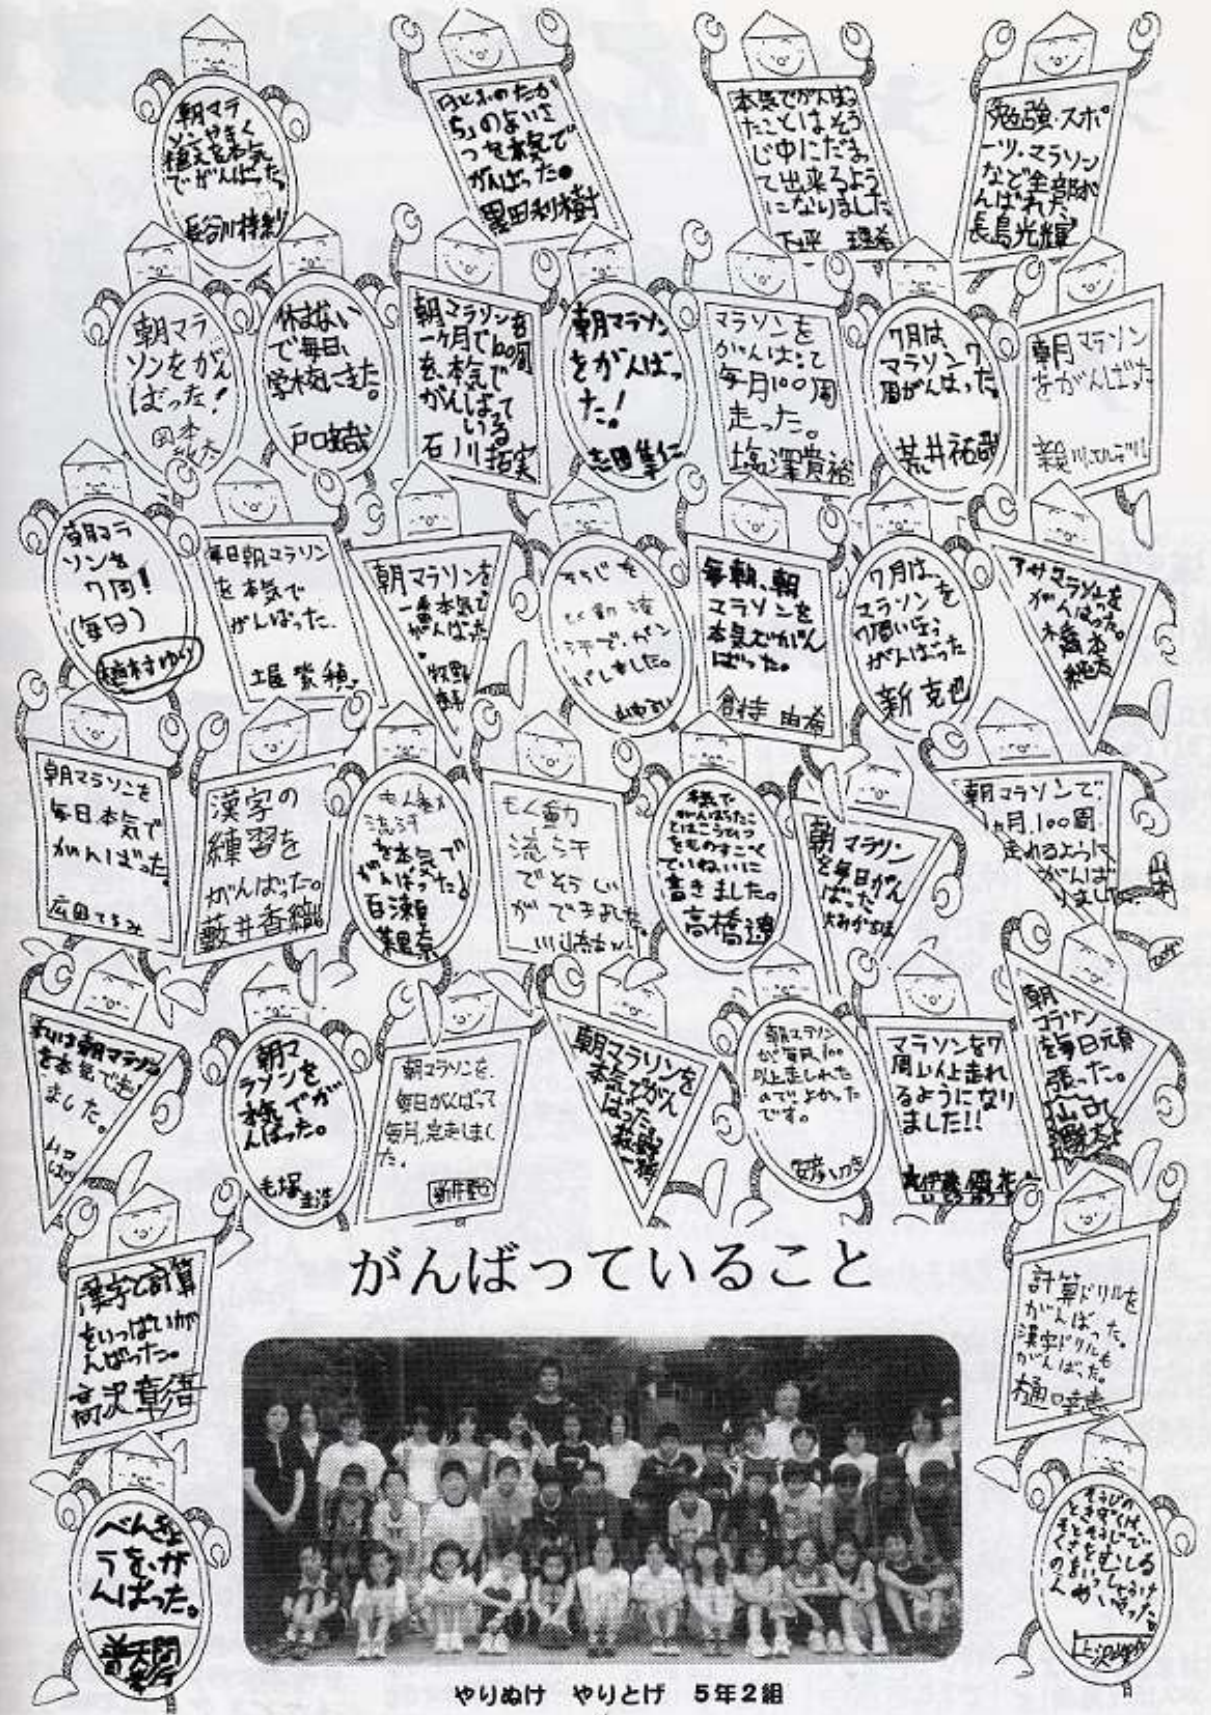 朝マラ
ソンやきく
植えを本気
でがんばった。
長谷川
のたか
ら」のあいさ
つを本気で
がんばった。
黒田利樹
本気でがんばっ
たことはそう
じ中にだまっ
て出来るよう
になりました
下坪 理希
勉強・スポ
ーツ・マラソン
など全部が
んばれた
長島光輝
朝マラ
ソンをがん
ばった!
休まない
で毎日、
学校にきた。
戸口
朝マラソンを
一ヶ月で100周
を、本気で
がんばって
いる
石川拓実
朝マラソン
をがんばっ
た!
志田隼仁
マラソンを
がんばって
毎月100周
走った。
塩澤貴裕
7月は
マラソン7
周がんばった。
荒井祐哉
朝マラソン
をがんばった
朝マラ
ソンを
7周!
(毎日)
植村ゆり
毎日朝マラソン
を本気で
がんばった。
土屋紫穂
朝マラソンを
一番本気で
がんばった
。
牧野
そうじを
もく動流
汗で、がん
ばりました。
毎朝、朝
マラソンを
本気でがん
ばった。
倉持由希
7月は、
マラソンを
7周いじょう
がんばった
新克也
アサマラソンを
がんばった。
橋本
朝マラソンを
毎日本気で
がんばった。
広田てるみ
漢字の
練習を
がんばった。
藪井香織
もく動
流汗
を本気で
がんばった!
百瀬
茉里奈
もく動
流汗
でそうじ
ができました。
私が
がんばったこ
とはこうひつ
をものすごく
ていねいに
書きました。
高橋遼
朝マラソン
を毎日がん
ばった
朝マラソンで、
1ヵ月、100周
走れるように
がんばり
ました。
山本
私は朝マラソン
を本気で走り
ました。
山口
朝マ
ラソンを
本気でが
んばった。
毛塚
朝マラソンを、
毎日がんばって
毎月、完走しまし
た。
新井
朝マラソンを
本気でがん
ばった。
牧野
朝マラソン
が毎月、100
以上走しれた
のでよかった
です。
マラソンを7
周い上走れ
るようになり
ました!!
伊藤優花
いとうゆうか
朝
マラソン
を毎日元気
張った。
漢字と計算
をいっぱいが
んばった。
高沢章浩
計算ドリルを
がんばった。
漢字ドリルも
がんばった。
樋口幸恵
べんきょ
うを、が
んばった。
普天間
上沢
がんばっていること
やりぬけ やりとげ 5年2組